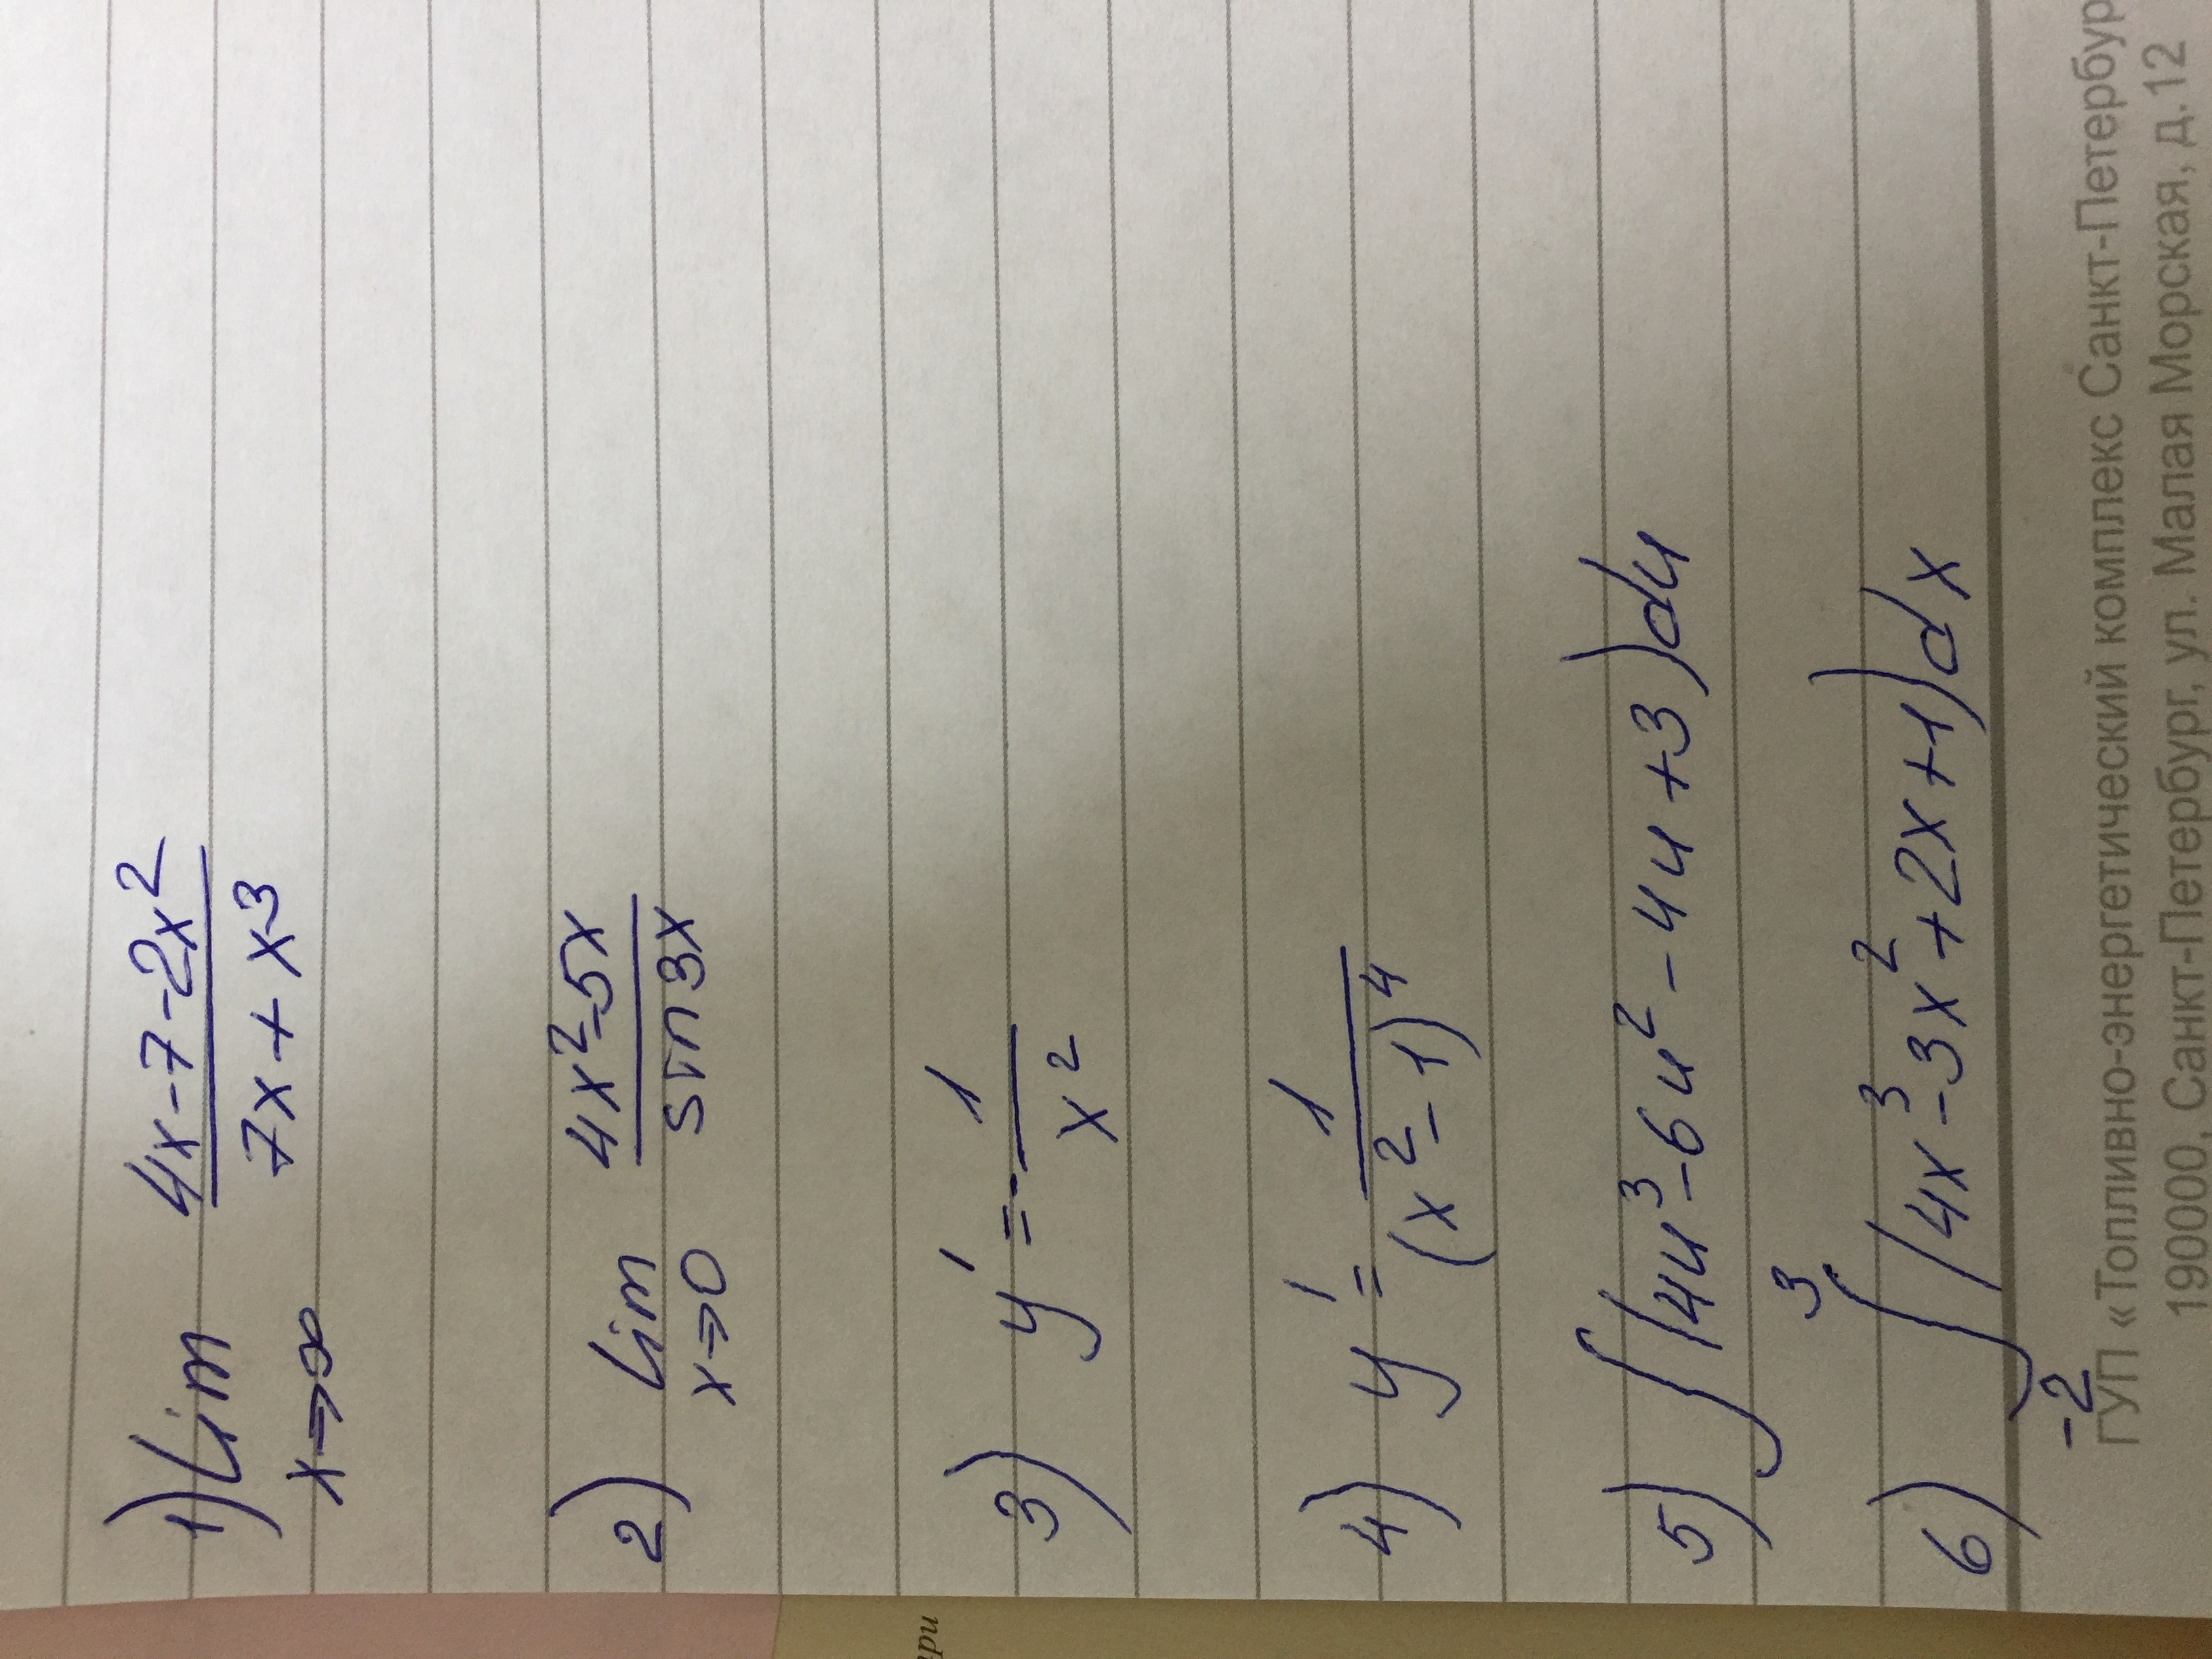 1) Lim 4x-7-2x²
x→∞ 7x+x³
2) Lim 4x²-5x
x→0 sin 3x
3) y' = - 1
x²
4) y' = 1
(x²-1)⁴
5) ∫(4u³-6u²-4u+3)du
3
6) ∫(4x³-3x²+2x+1)dx
-2
ГУП «Топливно-энергетический комплекс Санкт-Петербур
190000, Санкт-Петербург, ул. Малая Морская, д.12